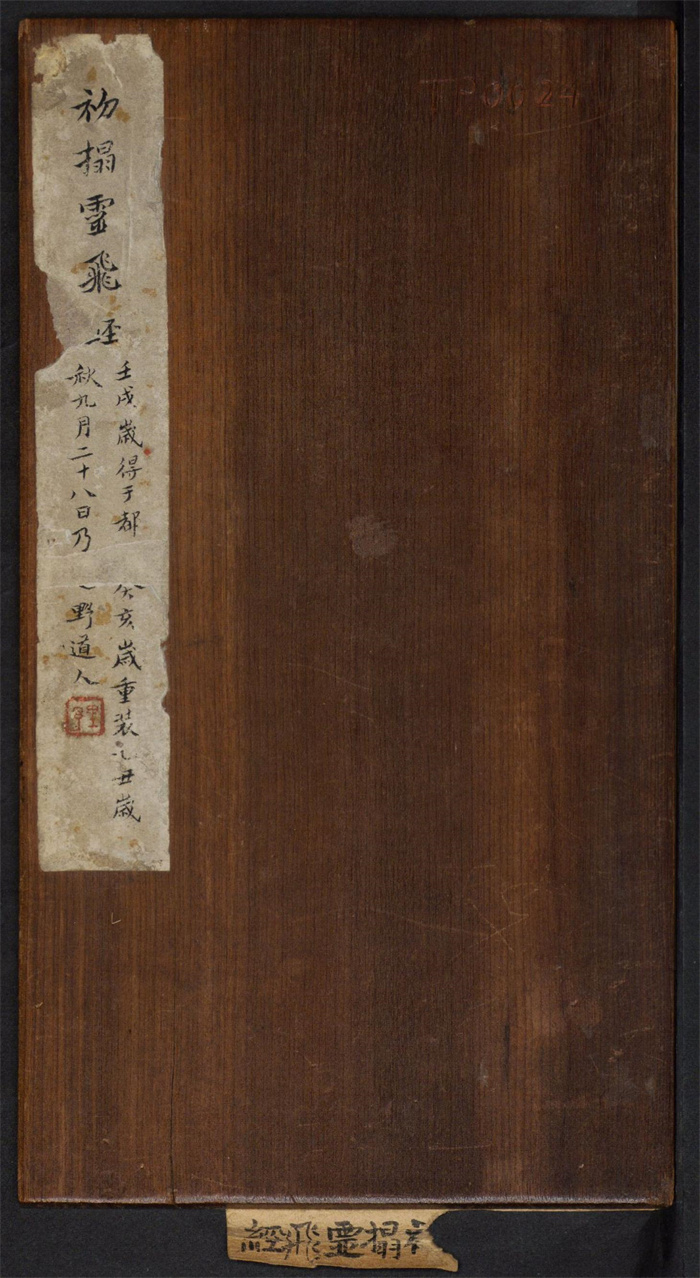 初搨靈飛巠
壬戌歲得于都
癸亥歲重装乙丑歲
秋九月二十八日乃
野道人
TP0024
搨靈飛經